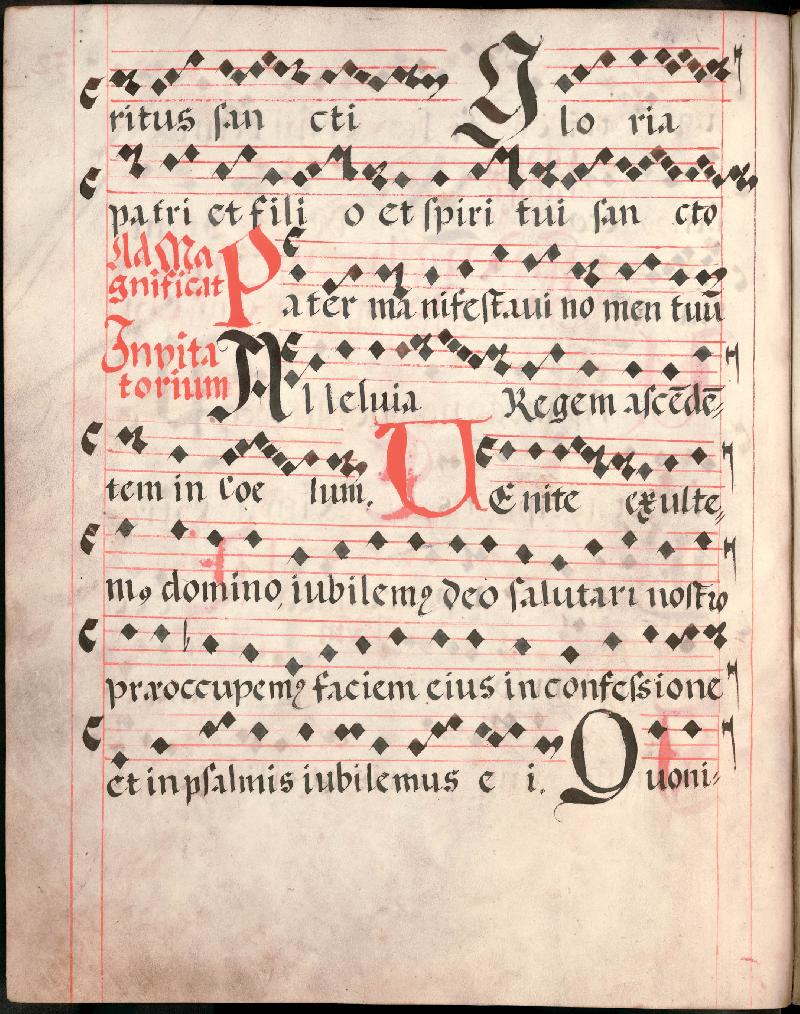 ritus san cti Glo ria
patri et fili o et spiri tui san cto
Ad Ma
gnificat Pater manifestaui nomen tuū
Invita
torium Alleluia Regem ascēdē=
tem in Coe lum. UEnite exulte=
mꝰ domino, iubilemꝰ deo salutari nostro
præoccupemꝰ faciem eius in confessione
et in psalmis iubilemus e i. Quoni=